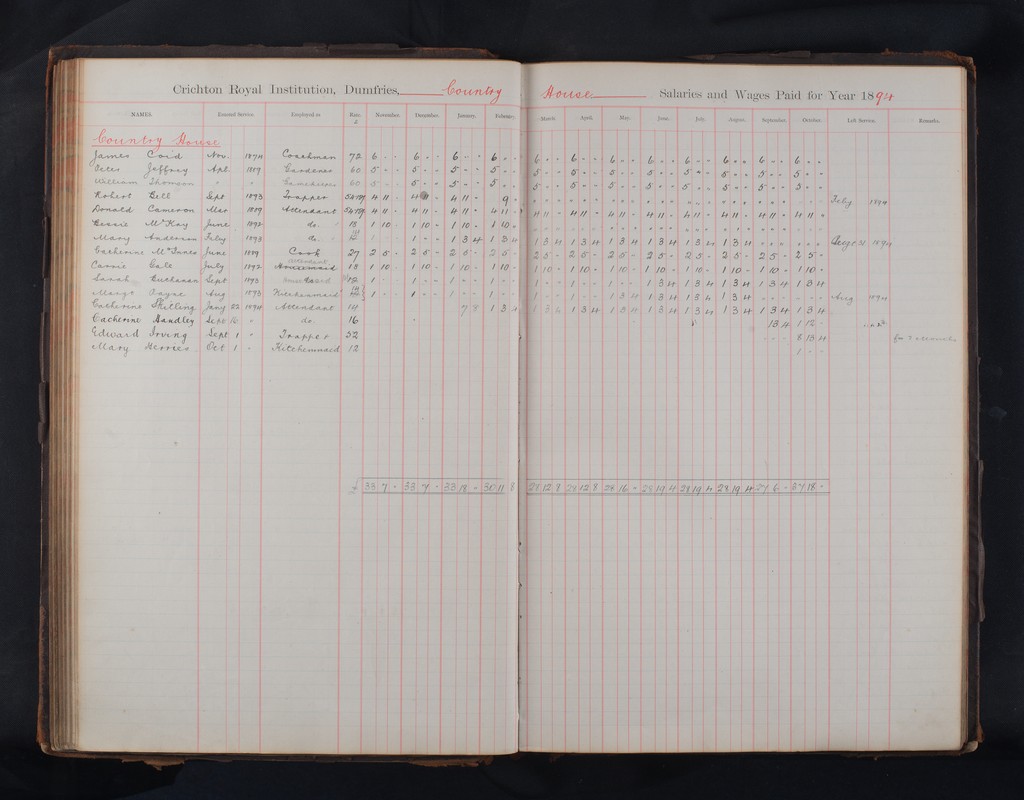 Crichton Royal Institution, Dumfries, Country House Salaries and Wages Paid for Year 1894
NAMES. Entered Service. Employed as Rate. £ November. December. January. February. March. April. May. June. July. August. September. October. Left Service. Remarks.
Country House
James Coid Nov. 1874 Coachman 72 6 - - 6 - - 6 - - 6 - - 6 - - 6 - - 6 - - 6 - - 6 - - 6 - - 6 - - 6 - -
Peter Jeffrey Apl. 1889 Gardener 60 5 - - 5 - - 5 - - 5 - - 5 - - 5 - - 5 - - 5 - - 5 - - 5 - - 5 - - 5 - -
William Thomson " " Gamekeeper 60 5 - - 5 - - 5 - - 5 - - 5 - - 5 - - 5 - - 5 - - 5 - - 5 - - 5 - - 5 - -
Robert Bell Sept 1893 Trapper 4 11 - 4 11 - 9 - Feby 1894
Donald Cameron Mar 1889 Attendant 4 11 - 4 11 - 4 11 - 4 11 - 4 11 - 4 11 - 4 11 - 4 11 - 4 11 - 4 11 - 4 11 - 4 11 -
Bessie McKay June 1892 do. 18 1 10 - 1 10 - 1 10 - 1 10 -
Mary Anderson Feby 1893 do. 1 - - 1 3 4 1 3 4 1 3 4 1 3 4 1 3 4 1 3 4 1 3 4 1 3 4 Augt 31 1894
Catherine McInnes June 1889 Cook 27 2 5 - 2 5 - 2 5 - 2 5 - 2 5 - 2 5 - 2 5 - 2 5 - 2 5 - 2 5 - 2 5 - 2 5 -
Carrie Gale July 1892 Attendant 18 1 10 - 1 10 - 1 10 - 1 10 - 1 10 - 1 10 - 1 10 - 1 10 - 1 10 - 1 10 - 1 10 - 1 10 -
Sarah Buchanan Sept 1893 1 - - 1 - - 1 - - 1 - - 1 - - 1 - - 1 - - 1 3 4 1 3 4 1 3 4 1 3 4 1 3 4
Payne Aug 1893 Kitchenmaid 1 - - 1 - - 1 - - 1 - - 1 3 4 1 3 4 1 3 4 1 3 4 Aug 1894
Catherine Shilling Jany 22 1894 Attendant 14 7 8 1 3 4 1 3 4 1 3 4 1 3 4 1 3 4 1 3 4 1 3 4 1 3 4 1 3 4
Catherine Handley Sept 16 " do. 16 13 4 1 12 -
Edward Irving Sept 1 " Trapper 52 8 13 4 for 2 months
Mary Herries Oct 1 " Kitchenmaid 12 1 - -
£ 33 7 - 33 7 - 33 18 - 30 11 8 28 12 8 28 12 8 28 16 - 28 19 4 28 19 4 28 19 4 27 6 - 37 18 -